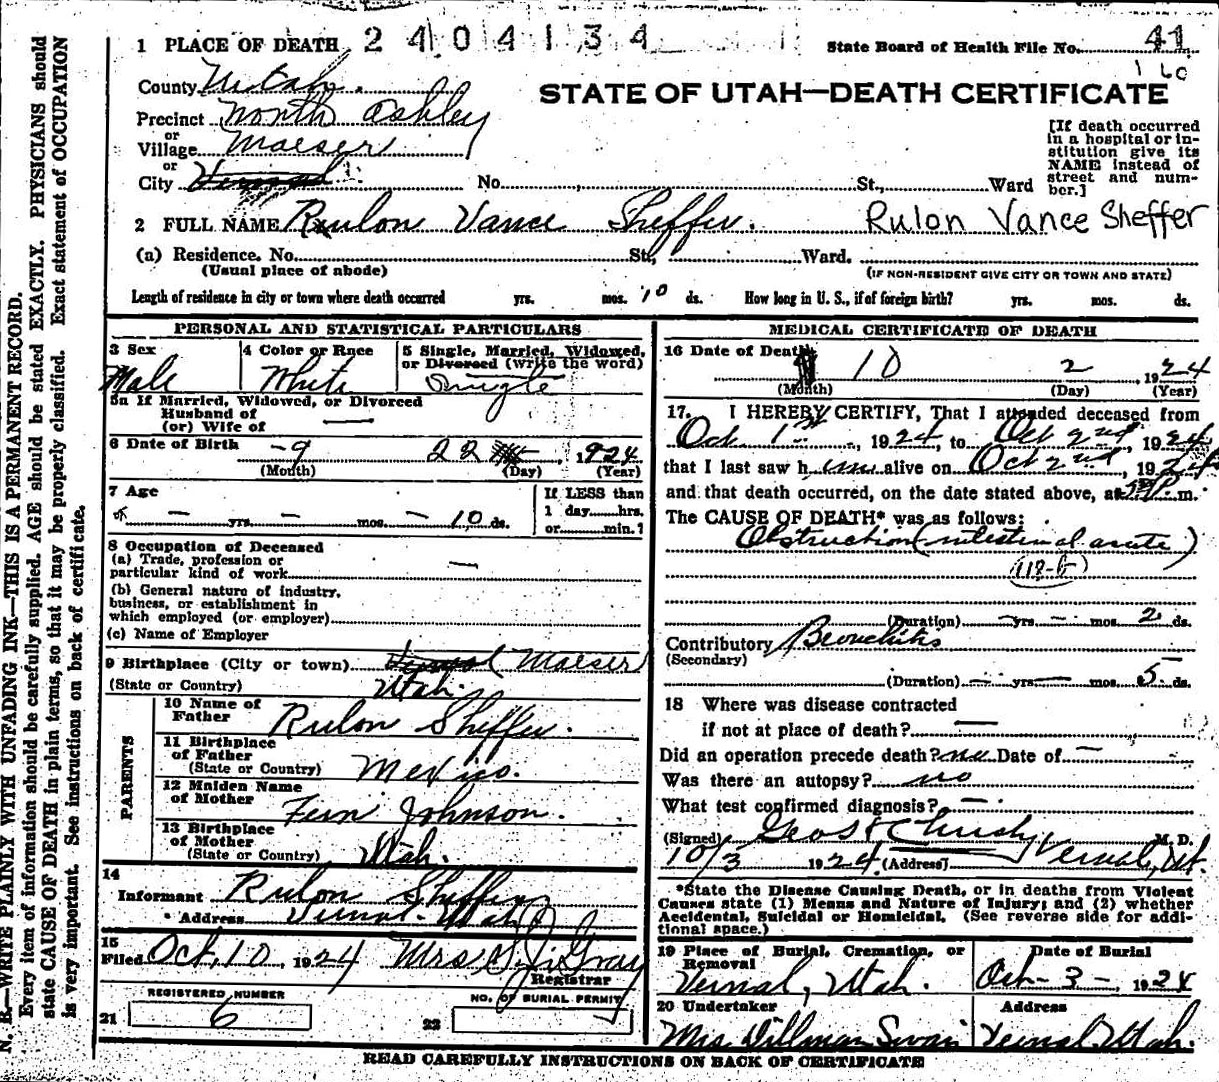 N. B.—WRITE PLAINLY WITH UNFADING INK—THIS IS A PERMANENT RECORD.
Every item of information should be carefully supplied. AGE should be stated EXACTLY. PHYSICIANS should
state CAUSE OF DEATH in plain terms, so that it may be properly classified. Exact statement of OCCUPATION
is very important. See instructions on back of certificate.
1 PLACE OF DEATH 2404134 State Board of Health File No. 41
160
County
STATE OF UTAH—DEATH CERTIFICATE
Precinct North Ashley
or
Village Maeser
or
City Vernal No. , St., Ward
[If death occurred
in a hospital or in-
stitution give its
NAME instead of
street and num-
ber.]
2 FULL NAME Rulon Vance Sheffer. Rulon Vance Sheffer
(a) Residence. No. St., Ward.
(Usual place of abode) (IF NON-RESIDENT GIVE CITY OR TOWN AND STATE)
Length of residence in city or town where death occurred yrs. mos. 10 ds. How long in U. S., if of foreign birth? yrs. mos. ds.
PERSONAL AND STATISTICAL PARTICULARS
3 Sex 4 Color or Race 5 Single, Married, Widowed,
or Divorced (write the word)
Male White Single
5a If Married, Widowed, or Divorced
Husband of
(or) Wife of —
6 Date of Birth 9 22 , 1924
(Month) (Day) (Year)
7 Age
— yrs. — mos. — 10 ds.
If LESS than
1 day......hrs.
or......min.?
8 Occupation of Deceased
(a) Trade, profession or
particular kind of work —
(b) General nature of industry,
business, or establishment in
which employed (or employer)
(c) Name of Employer
9 Birthplace (City or town) Vernal Maeser
(State or Country) Utah.
PARENTS
10 Name of
Father Rulon Sheffer.
11 Birthplace
of Father
(State or Country) Mexico.
12 Maiden Name
of Mother Fern Johnson.
13 Birthplace
of Mother
(State or Country) Utah.
14
Informant Rulon Sheffer
Address Vernal Utah
15
Filed Oct, 10, 1924 Mrs Gray
Registrar
REGISTERED NUMBER NO. OF BURIAL PERMIT
21 6 22
MEDICAL CERTIFICATE OF DEATH
16 Date of Death
10 2 , 1924
(Month) (Day) (Year)
17. I HEREBY CERTIFY, That I attended deceased from
Oct 1st, 1924, to Oct 2nd, 1924
that I last saw him alive on Oct 2nd, 1924
and that death occurred, on the date stated above, at P. m.
The CAUSE OF DEATH* was as follows:
Obstruction (intestinal acute)
(118-b)
(Duration) — yrs. — mos. 2 ds.
Contributory Bronchitis
(Secondary)
(Duration) — yrs. — mos. 5 ds.
18 Where was disease contracted
if not at place of death? —
Did an operation precede death? no Date of —
Was there an autopsy? no
What test confirmed diagnosis? —
(Signed) Christy M. D.
10/3 1924 (Address) Vernal, Ut.
*State the Disease Causing Death, or in deaths from Violent
Causes state (1) Means and Nature of Injury; and (2) whether
Accidental, Suicidal or Homicidal. (See reverse side for addi-
tional space.)
19 Place of Burial, Cremation, or
Removal Date of Burial
Vernal, Utah. Oct-3-, 1924
20 Undertaker Address
Mrs Dillman Swain Vernal Utah.
READ CAREFULLY INSTRUCTIONS ON BACK OF CERTIFICATE